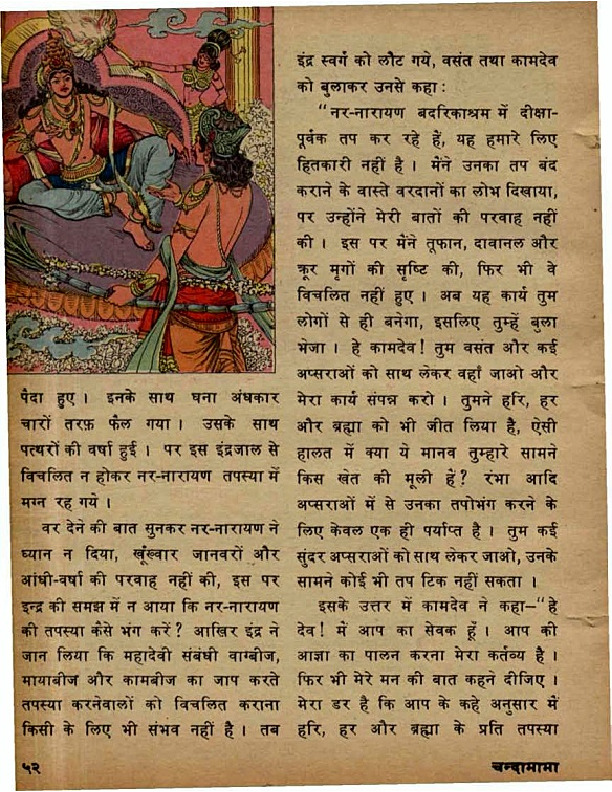 पैदा हुए । इनके साथ घना अंधकार
चारों तरफ़ फैल गया । उसके साथ
पत्थरों की वर्षा हुई । पर इस इंद्रजाल से
विचलित न होकर नर-नारायण तपस्या में
मग्न रह गये ।
वर देने की बात सुनकर नर-नारायण ने
ध्यान न दिया, खूंख्वार जानवरों और
आंधी-वर्षा की परवाह नहीं की, इस पर
इन्द्र की समझ में न आया कि नर-नारायण
की तपस्या कैसे भंग करें? आखिर इंद्र ने
जान लिया कि महादेवी संबंधी वाग्बीज,
मायाबीज और कामबीज का जाप करते
तपस्या करनेवालों को विचलित कराना
किसी के लिए भी संभव नहीं है । तब
इंद्र स्वर्ग को लौट गये, वसंत तथा कामदेव
को बुलाकर उनसे कहा:
“नर-नारायण बदरिकाश्रम में दीक्षा-
पूर्वक तप कर रहे हैं, यह हमारे लिए
हितकारी नहीं है । मैंने उनका तप बंद
कराने के वास्ते वरदानों का लोभ दिखाया,
पर उन्होंने मेरी बातों की परवाह नहीं
की । इस पर मैंने तूफान, दावानल और
क्रूर मृगों की सृष्टि की, फिर भी वे
विचलित नहीं हुए । अब यह कार्य तुम
लोगों से ही बनेगा, इसलिए तुम्हें बुला
भेजा । हे कामदेव! तुम वसंत और कई
अप्सराओं को साथ लेकर वहाँ जाओ और
मेरा कार्य संपन्न करो । तुमने हरि, हर
और ब्रह्मा को भी जीत लिया है, ऐसी
हालत में क्या ये मानव तुम्हारे सामने
किस खेत की मूली हैं? रंभा आदि
अप्सराओं में से उनका तपोभंग करने के
लिए केवल एक ही पर्याप्त है । तुम कई
सुंदर अप्सराओं को साथ लेकर जाओ, उनके
सामने कोई भी तप टिक नहीं सकता ।
इसके उत्तर में कामदेव ने कहा-“हे
देव! में आप का सेवक हूँ । आप की
आज्ञा का पालन करना मेरा कर्तव्य है ।
फिर भी मेरे मन की बात कहने दीजिए ।
मेरा डर है कि आप के कहे अनुसार मैं
हरि, हर और ब्रह्मा के प्रति तपस्या
५२
चन्दामामा